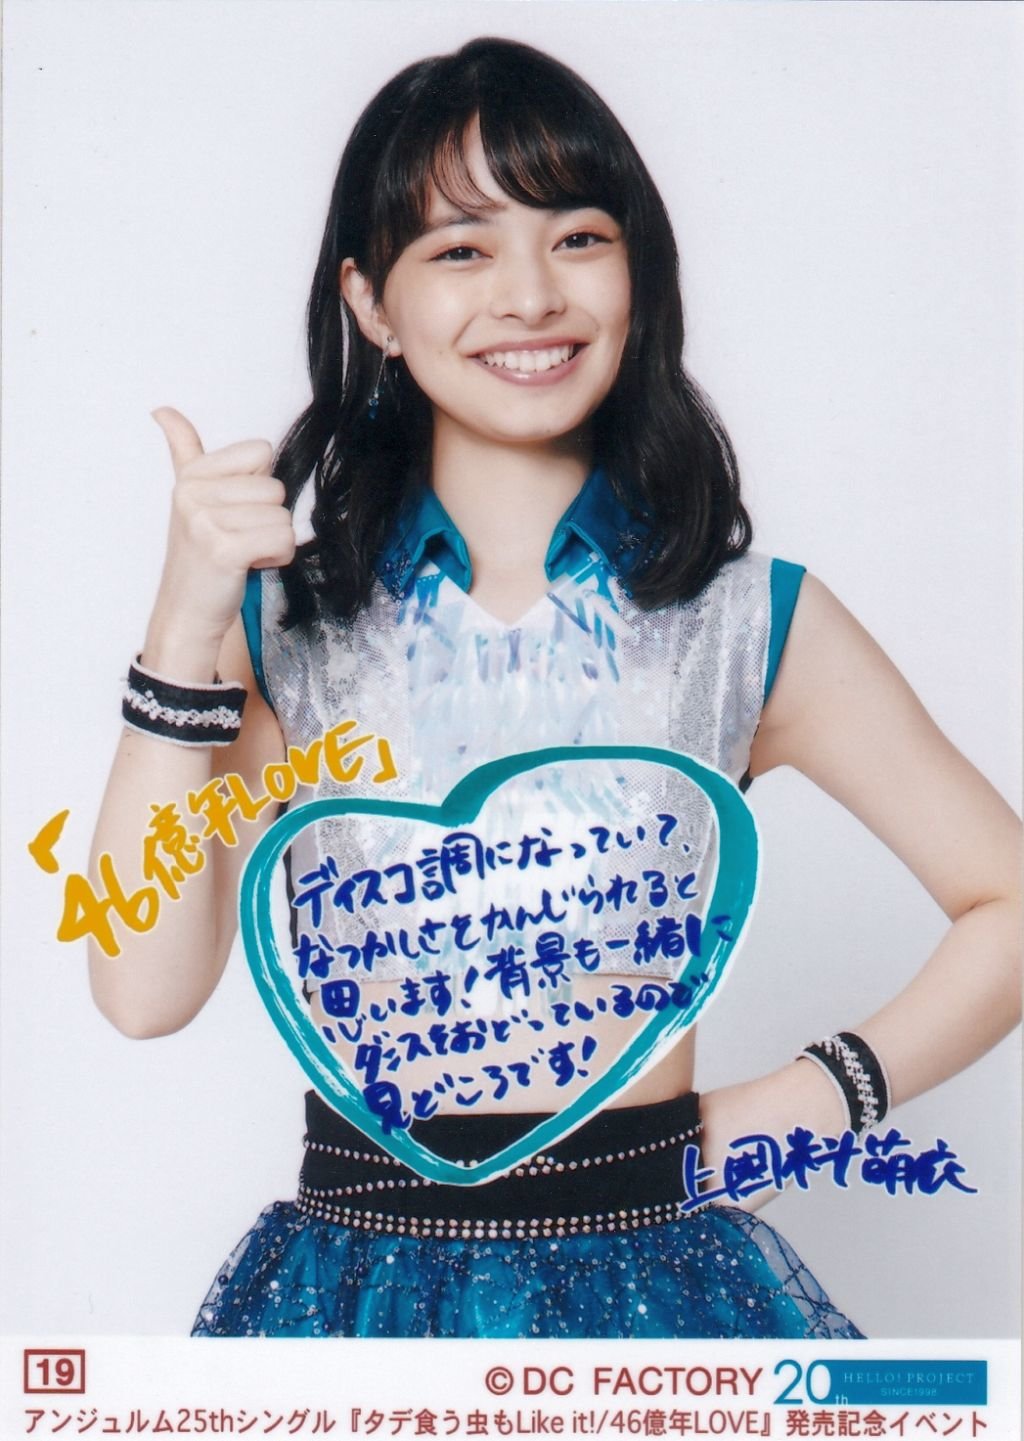 「46億年LOVE」
ディスコ調になっていて、
なつかしさをかんじられると
思います!背景も一緒に
ダンスをおどっているので
見どころです!
上國料萌衣
19
©DC FACTORY 20th HELLO! PROJECT
SINCE1998
アンジュルム25thシングル『タデ食う虫もLike it!/46億年LOVE』発売記念イベント